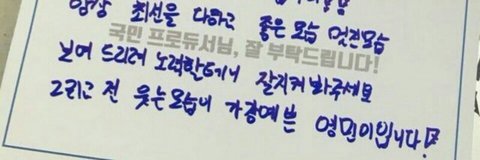 항상 최선을 다하고 좋은모습 멋진모습
국민 프로듀서님, 잘 부탁드립니다!
보여 드리려 노력할테니 잘지켜봐주세요
그리고 전 웃는모습이 가장예쁜 영민이입니다!